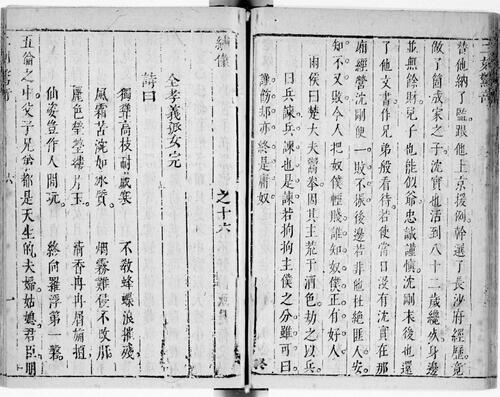 替他納了監跟他上京援例幹選了長沙府經歷竟
做了箇成家之子沈實也活到八十二歲纔歿身邊
並無餘財兒子也能似爺忠誠謹愼沈剛末後也還
了他文書作兄弟般看待若使當日沒有沈實在那
廂經營沈剛便一敗不振後邊若非他杜絕匪人安
知不又敗今人把奴僕輕賤誰知奴僕正有好人
雨侯曰楚大夫鬻拳因其主荒于酒色劫之以兵
曰兵諫兵諫也是諫若拘拘主僕之分雖可曰
謹飭却亦終是庸奴
終
繡像 之十六
全孝義孤女完
詩曰
獨聳高枝耐歲寒 不教蜂蝶浪摧殘
風霜苦涴如冰質 烟霧難侵不改肝
麗色瑩瑩縷片玉 清香冉冉屑旃檀
仙姿豈作人間玩 終向羅浮第一磐
五倫之中父子兄弟都是天生的夫婦姑媳君臣朋